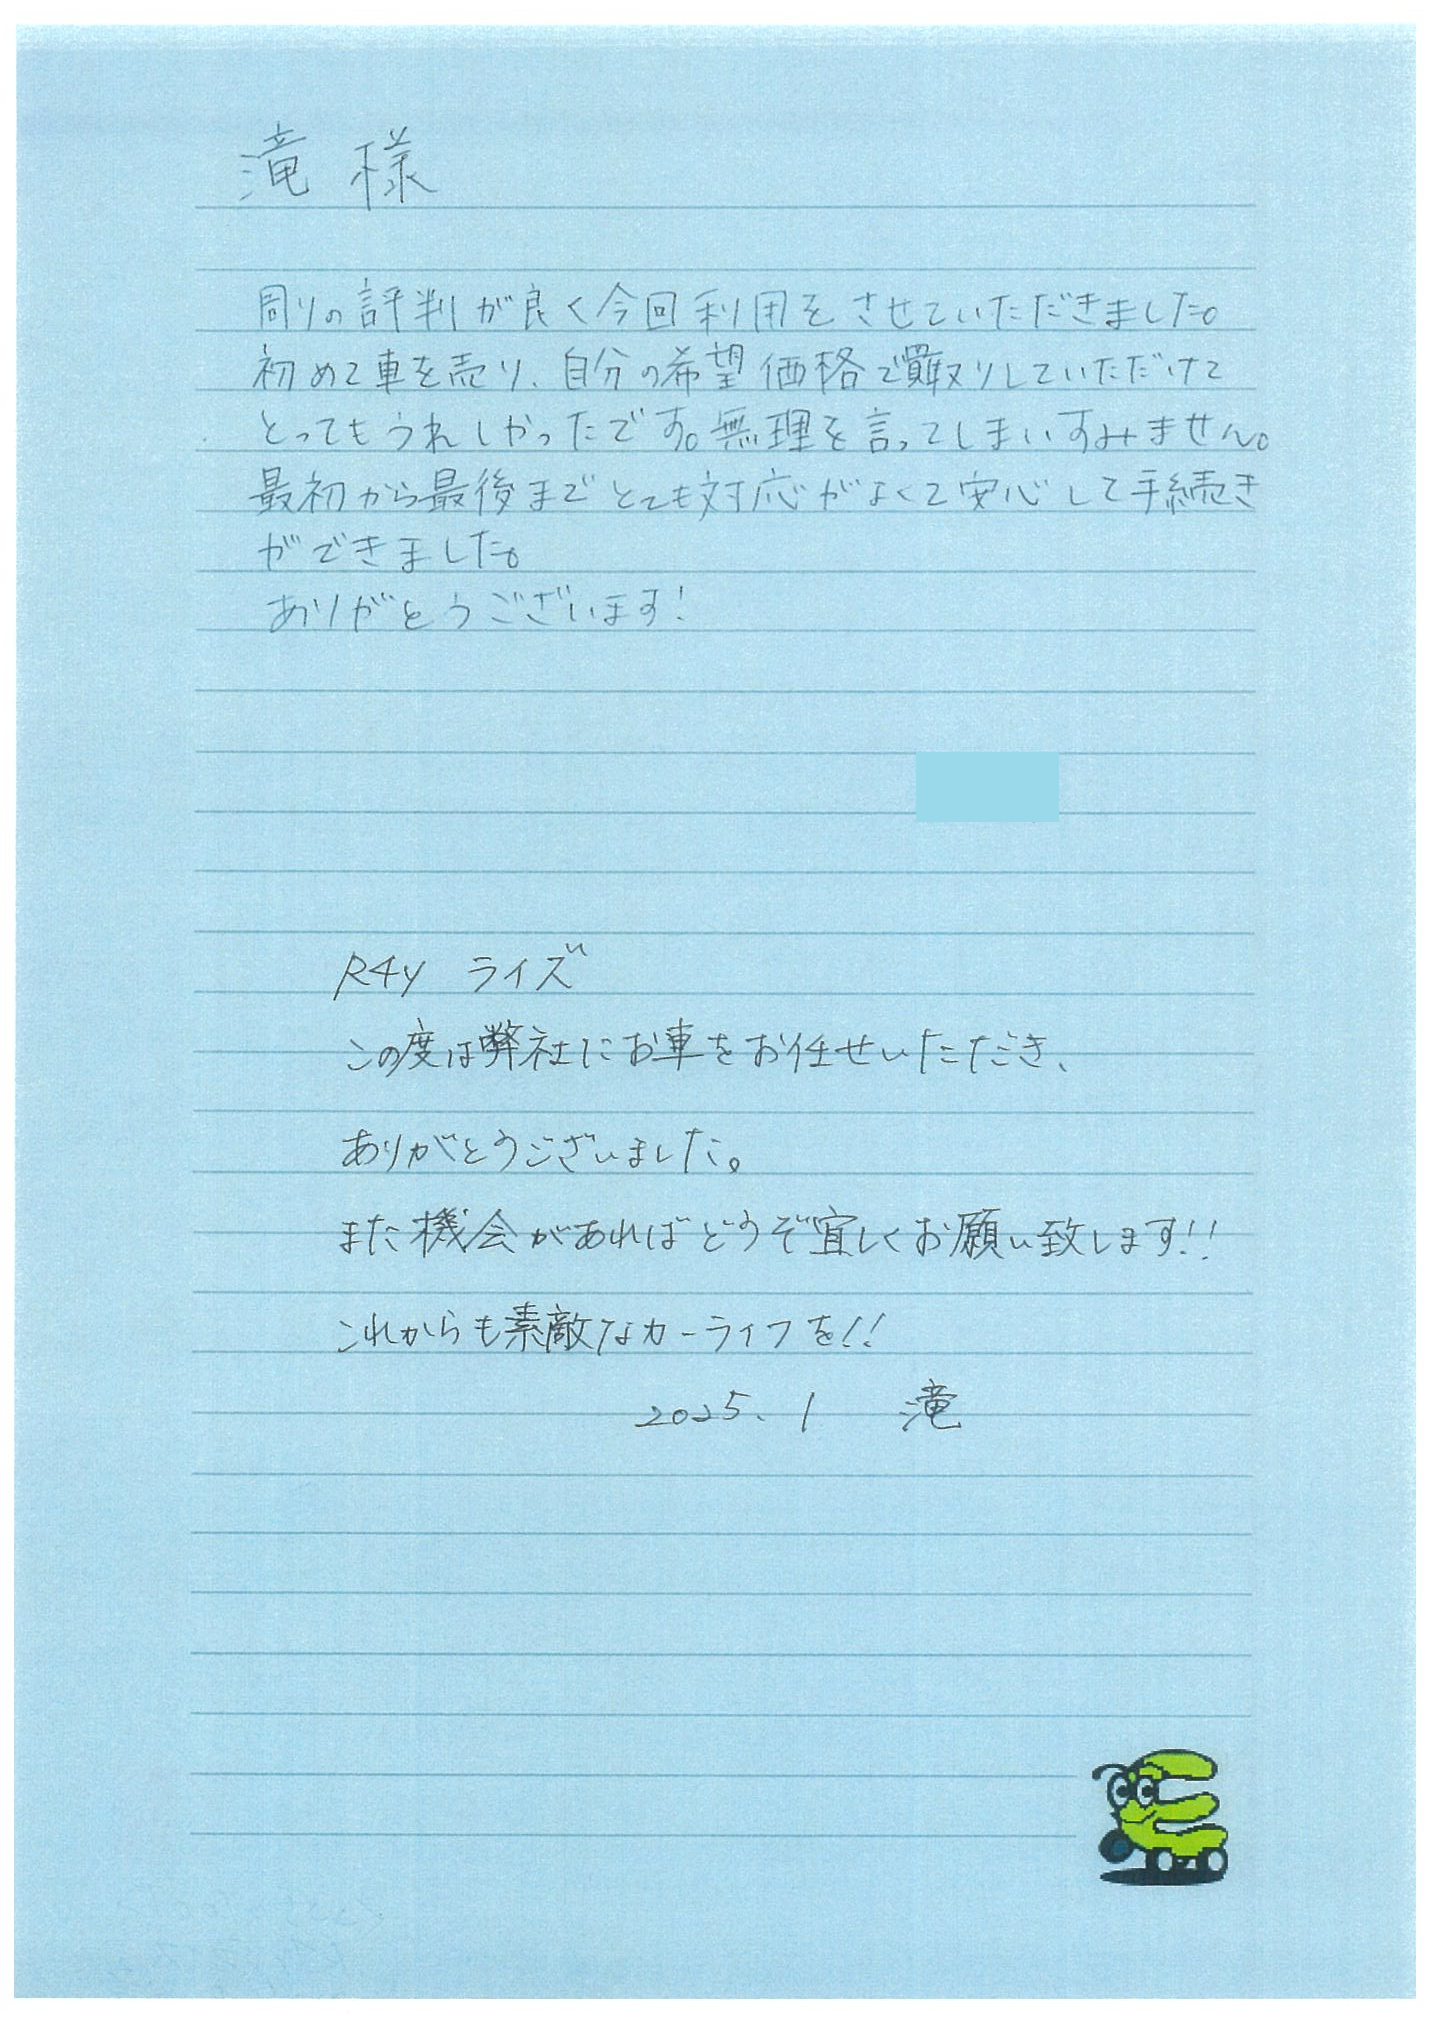 滝 様
周りの評判が良く今回利用をさせていただきました。
初めて車を売り、自分の希望価格で買取りしていただけて
とってもうれしかったです。無理を言ってしまいすみません。
最初から最後までとても対応がよくて安心して手続き
ができました。
ありがとうございます!
R4y ライズ
この度は弊社にお車をお任せいただき、
ありがとうございました。
また機会があればどうぞ宜しくお願い致します!!
これからも素敵なカーライフを!!
2025. 1 滝